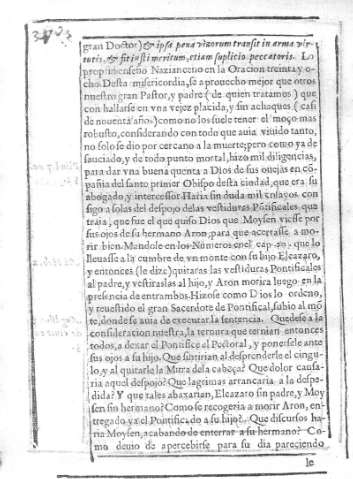 gran Doctor) & ipsa pena vitiorum transit in arma vir-
tutis, & fit iusti meritum, etiam suplicio peccatoris. Lo
proprio enseño Nazianceno en la Oracion treinta y o-
cho. Desta misericordia, se aprouecho mejor que otros
nuestro gran Pastor, y padre (de quien tratamos) que
con hallarse en vna vejez placida, y sin achaques (casi
de nouenta años) como no los suele tener el moço mas
robusto, considerando con todo que auia viuido tanto,
no solo se dio por cercano a la muerte; pero como ya de
sauciado, y de todo punto mortal, hizo mil diligencias,
para dar vna buena quenta a Dios de sus ouejas en cõ-
pañia del santo primer Obispo desta ciudad, que era su
abogado, y intercessor Haria sin duda mil ensayos con
sigo a solas del despojo de las vestiduras Põtificales que
traia, que fue el que quiso Dios que Moysen viesse por
sus ojos de su hermano Aron, para que acertasse a mo-
rir bien. Mandole en los Numeros en el cap. 20. que lo
lleuasse a la cumbre de vn monte con su hijo Eleazaro,
y entonces (le dize) quitaras las vestiduras Pontificales
al padre, y vestiraslas al hijo, y Aron morira luego en la
presencia de entrambos. Hizose como Dios lo ordeno,
y reuestido el gran Sacerdote de Pontifical, subio al mõ
te, donde se auia de executar la sentencia. Quedese a la
consideracion nuestra, la ternura que ternian entonces
todos, a dexar el Pontifice el Pectoral, y ponersele ante
sus ojos a su hijo. Que sintirian al desprenderle el cingu-
lo, y al quitarle la Mitra dela cabeça? Que dolor causa-
ria aquel despojo? Que lagrimas arrancaria a la despe-
dida? Y que tales abaxarian, Eleazaro sin padre, y Moy
sen sin hermano? Como se recogeria a morir Aron, en-
tregado ya el Pontific. do a su hijo? Que discursos ha-
ria Moysen, acabando de enterrar a su hermano? Co-
mo deuio de apercebirse para su dia pareciendo
le